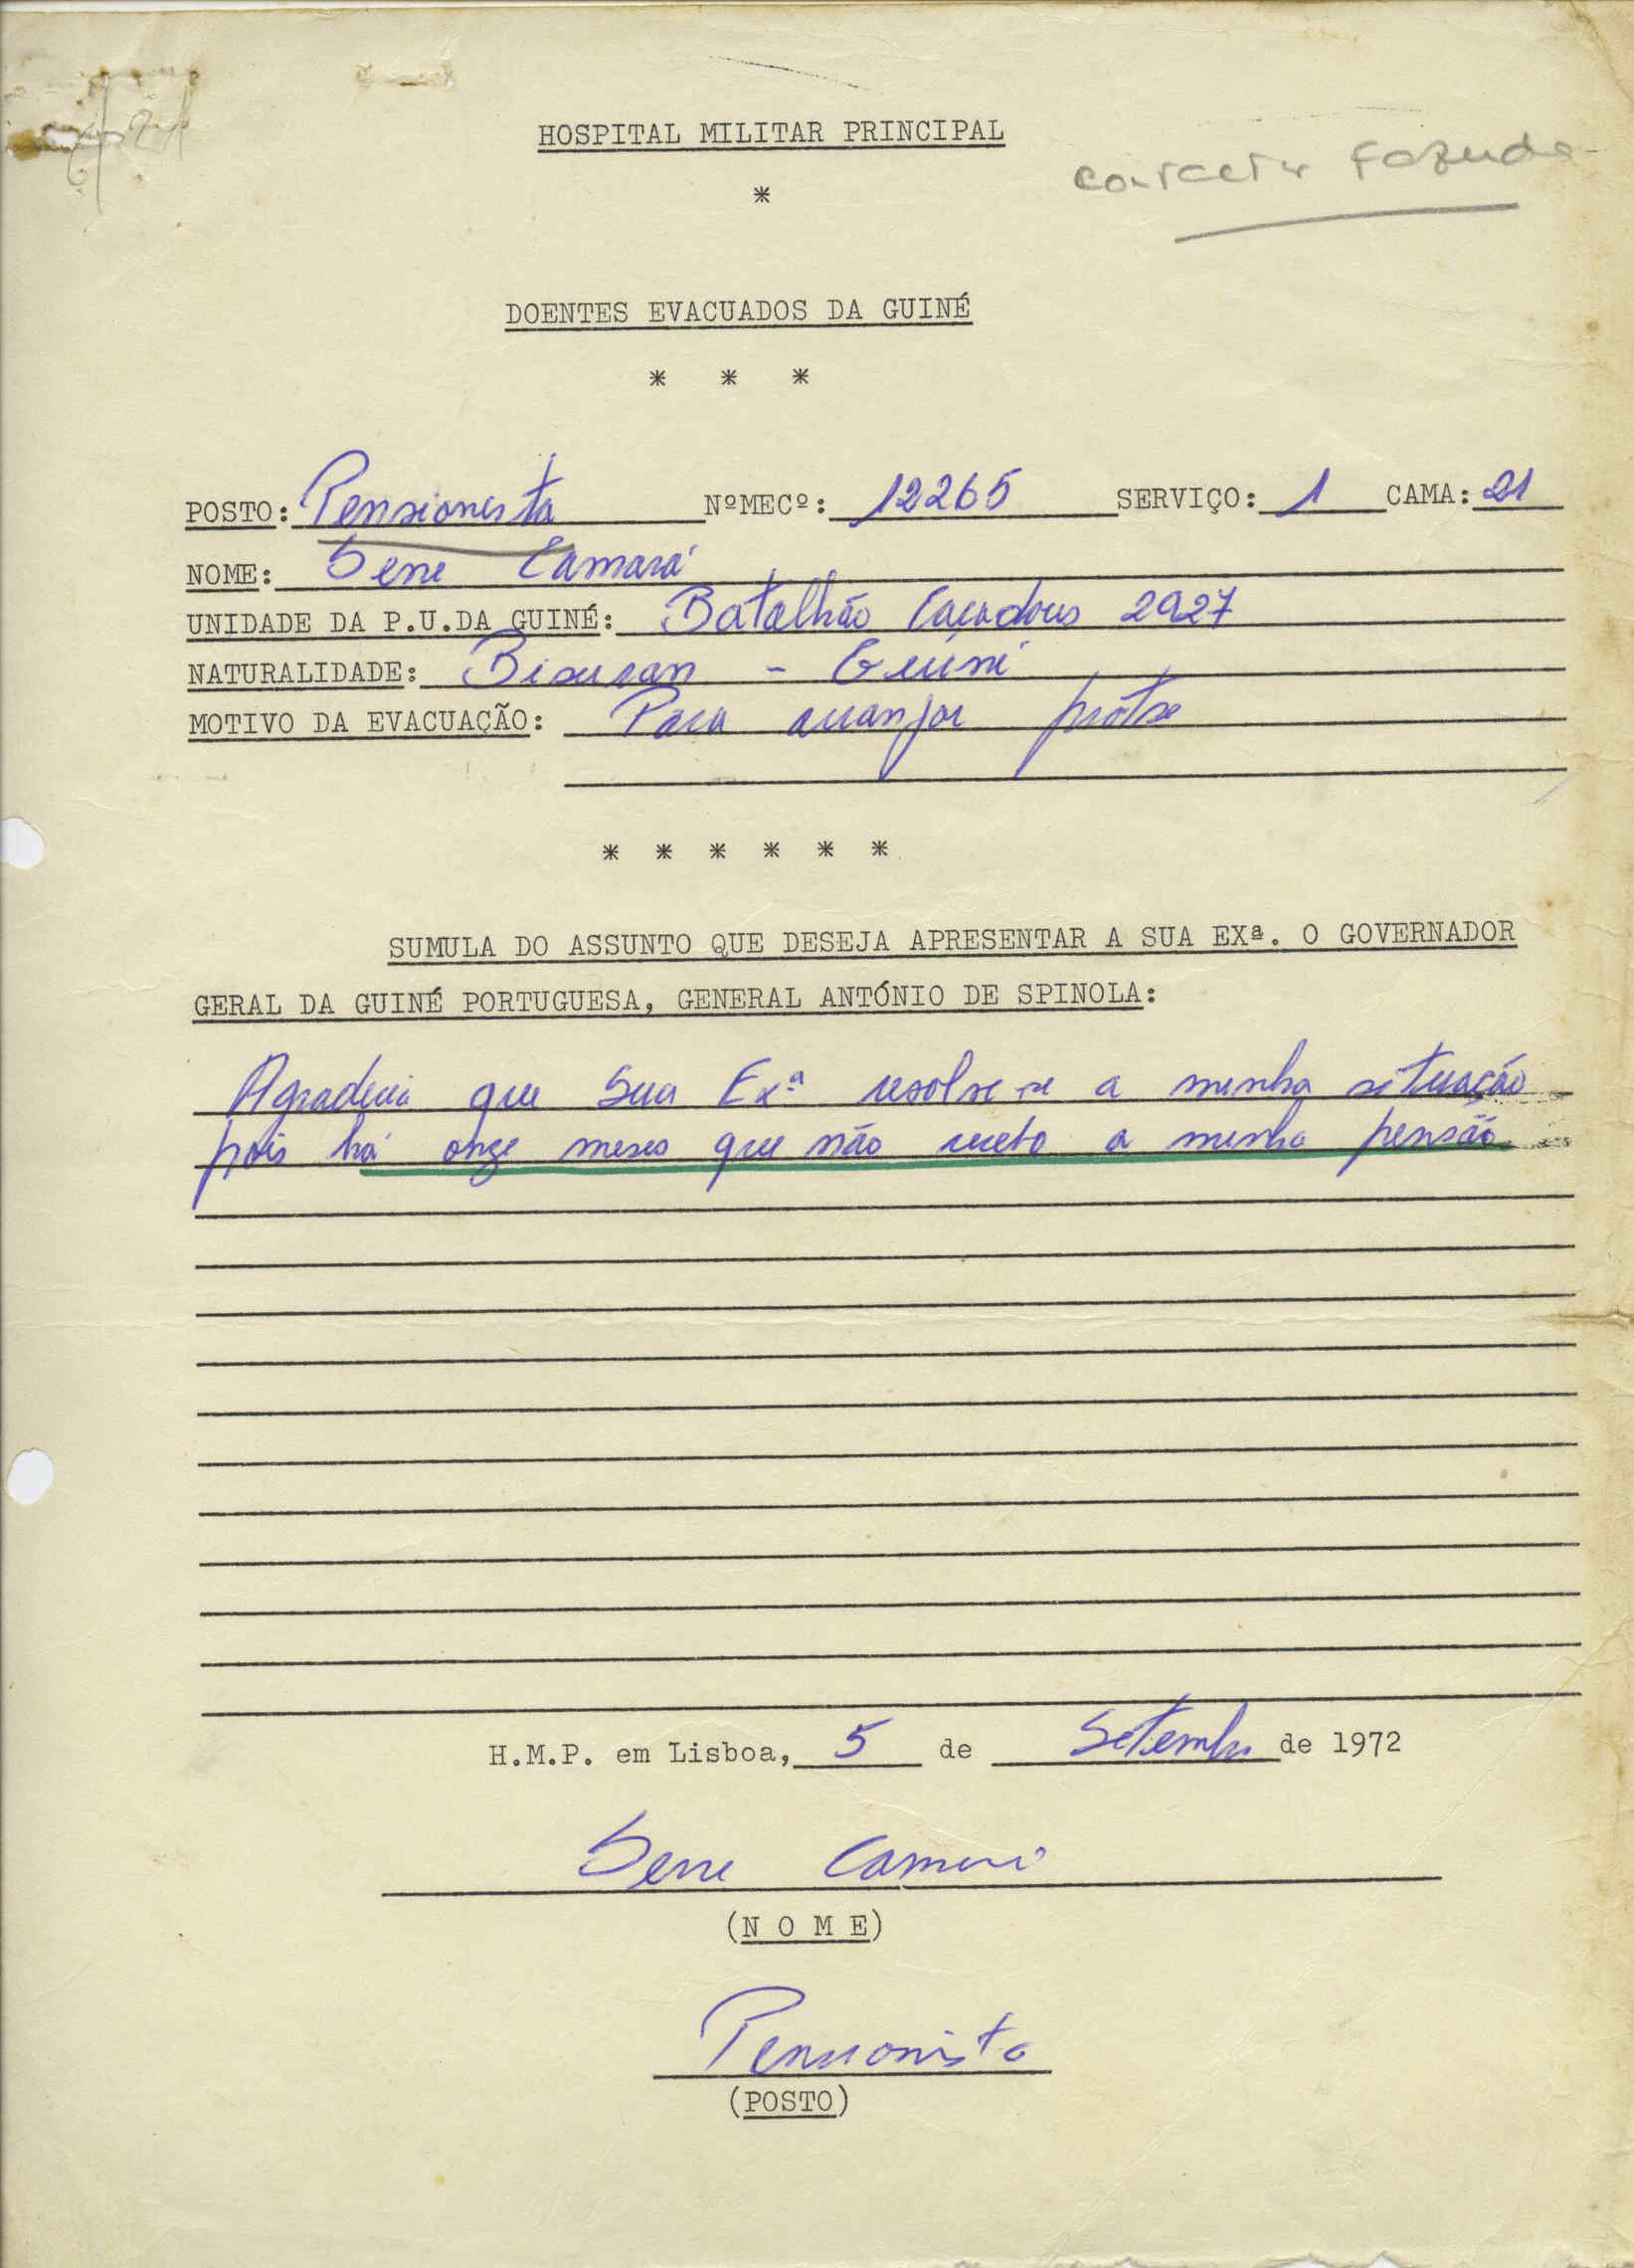 HOSPITAL MILITAR PRINCIPAL
*
DOENTES EVACUADOS DA GUINÉ
* * *
POSTO: Pensionista NºMECº: 12265 SERVIÇO: 1 CAMA: 21
NOME: Sene Camará
UNIDADE DA P.U.DA GUINÉ: Batalhão Caçadores 2927
NATURALIDADE: - Guiné
MOTIVO DA EVACUAÇÃO: Para arranjar
* * * * * *
SUMULA DO ASSUNTO QUE DESEJA APRESENTAR A SUA EXª. O GOVERNADOR
GERAL DA GUINÉ PORTUGUESA, GENERAL ANTÓNIO DE SPINOLA:
Agradecia que Sua Exª resolve-se a minha situação
pois há onze meses que não recebo a minha pensão
H.M.P. em Lisboa, 5 de Setembro de 1972
Sene Camará
(N O M E)
Pensionista
(POSTO)